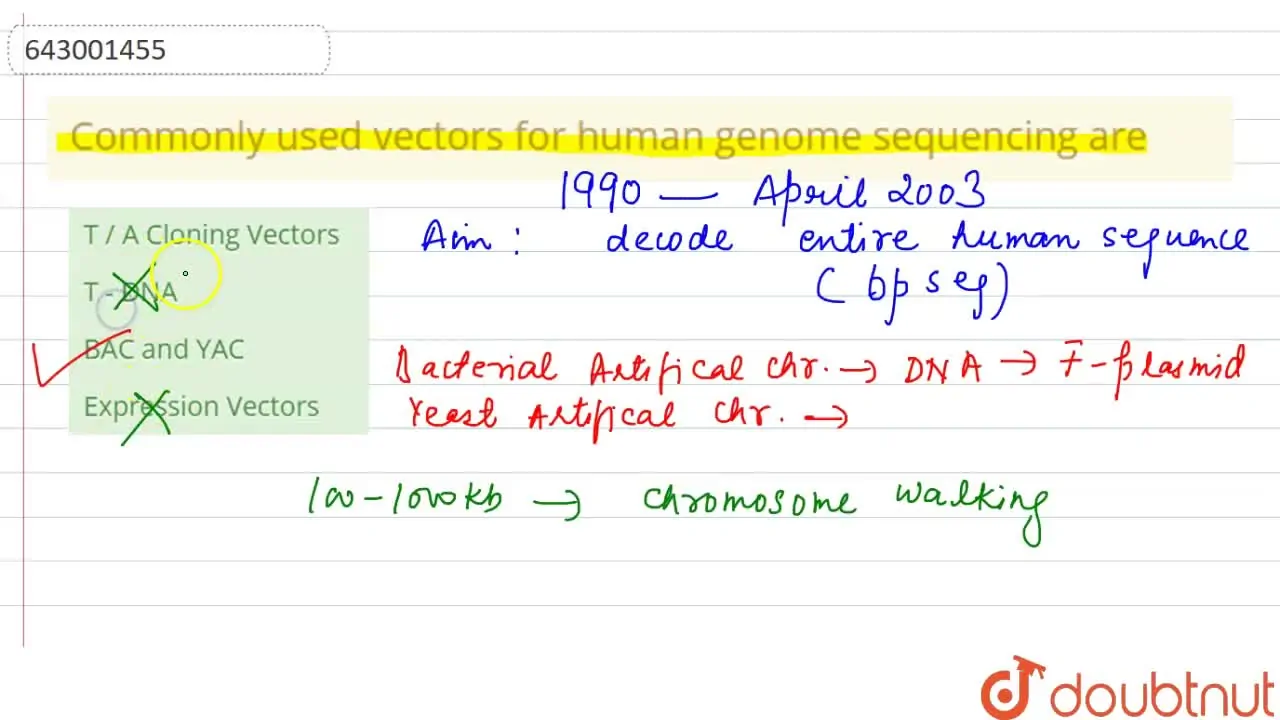 643001455
Commonly used vectors for human genome sequencing are
1990 — April 2003
Aim : decode entire human sequence
(bp seq)
T / A Cloning Vectors
T - DNA
BAC and YAC
Expression Vectors
Bacterial Artifical Chr. → DNA → F-plasmid
Yeast Artifical Chr. →
100-1000kb → chromosome walking
doubtnut